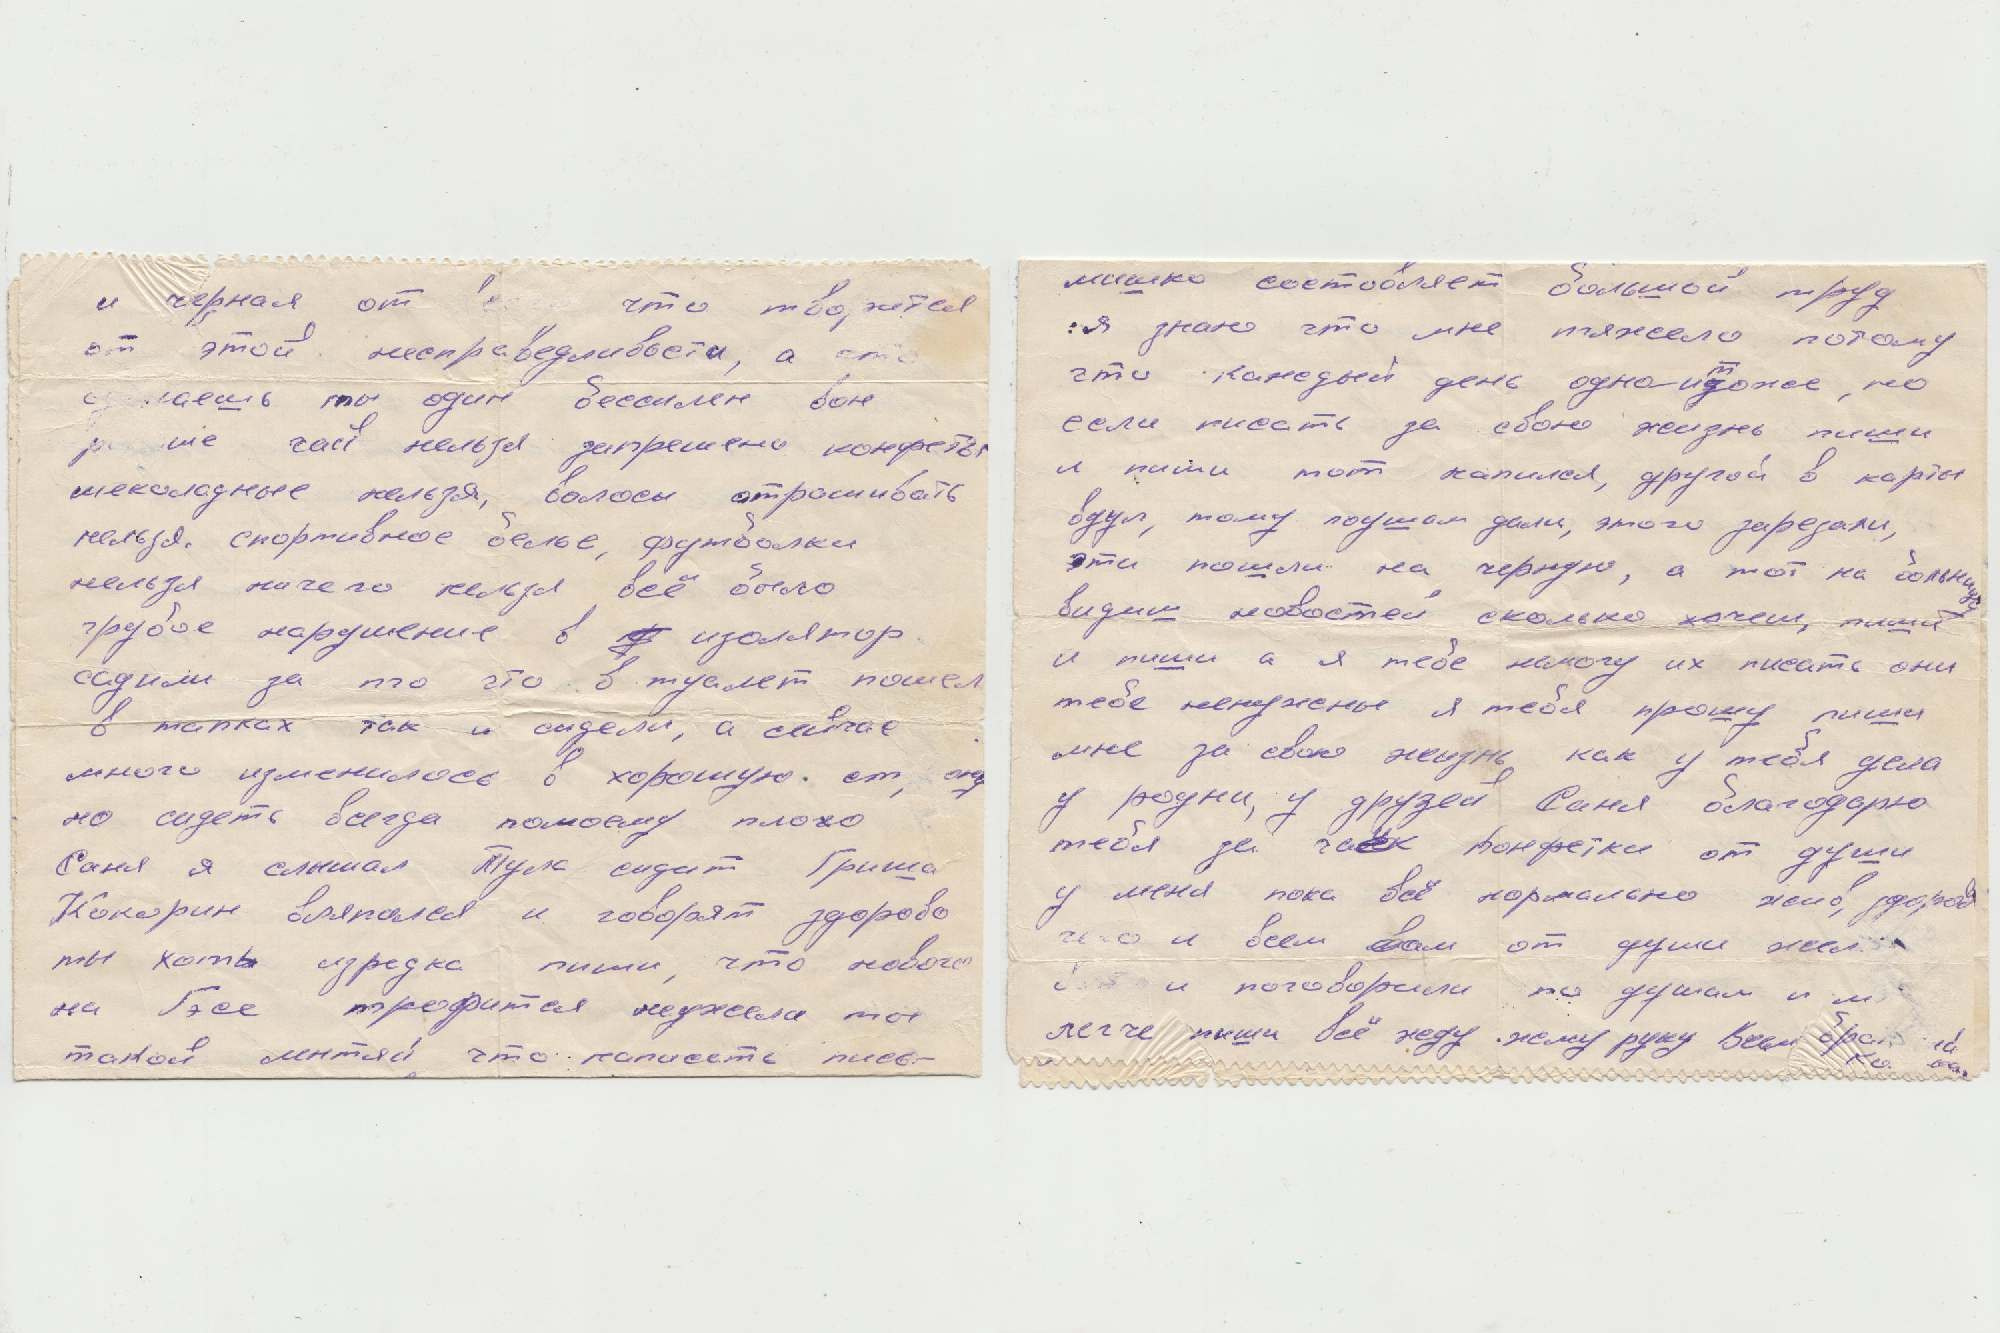 и черная от что творится
от этой несправедливости, а
ты один бессилен вон
чай нельзя запрещено конфеты
шеколадные нельзя, волосы отрашивать
нельзя. спортивное белье, футболки
нельзя ничего нельзя всё было
грубое нарушение в изолятор.
садили за то что в туалет пошел
в тапках так и сидели, а сейчас
много изменилось в хорошую. ст,
но сидеть всегда помоему плохо
Саня я слышал Тула сидит Гриша
Кокорин вляпался и говорят здорово
ты хоть изредка пиши, что нового
на Гэсе неужели ты
такой лентяй что написать пись-
мишко состовляет большой труд
я знаю что мне тяжело потому
что каждый день одно и тоже, но
если писать за свою жизнь пиши
и пиши тот напился, другой в карты
вдул, тому поушам дали, этого зарезали,
эти пошли на черную, а тот на больницу
видиш новостей сколько хочеш, пиши
и пиши а я тебе немогу их писать они
тебе ненужены я тебя прошу пиши
мне за свою жизнь как у тебя дела
у родни, у друзей Саня благодарю
тебя за чаёк конфетки от души
у меня пока всё нормально жив, здоров
чего и всем вам от души
и поговорили по душам и
легче пиши всё жду жму руку Всем